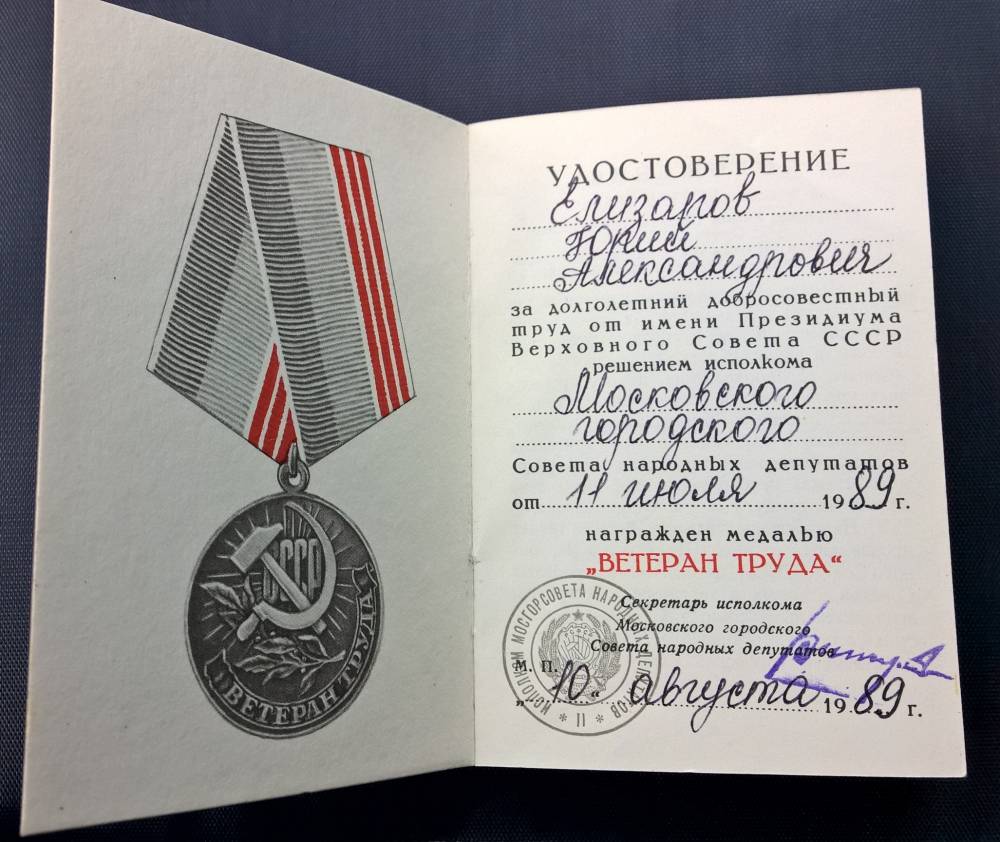 СССР
ВЕТЕРАН ТРУДА
УДОСТОВЕРЕНИЕ
Елизаров
Юрий
Александрович
за долголетний добросовестный
труд от имени Президиума
Верховного Совета СССР
решением исполкома
Московского
городского
Совета народных депутатов
от 11 июля 1989 г.
награжден медалью
„ВЕТЕРАН ТРУДА“
Секретарь исполкома
Московского городского
Совета народных депутатов
М. П.
„10“ августа 1989 г.
ИСПОЛКОМ МОСГОРСОВЕТА НАРОДНЫХ ДЕПУТАТОВ
* 11 *